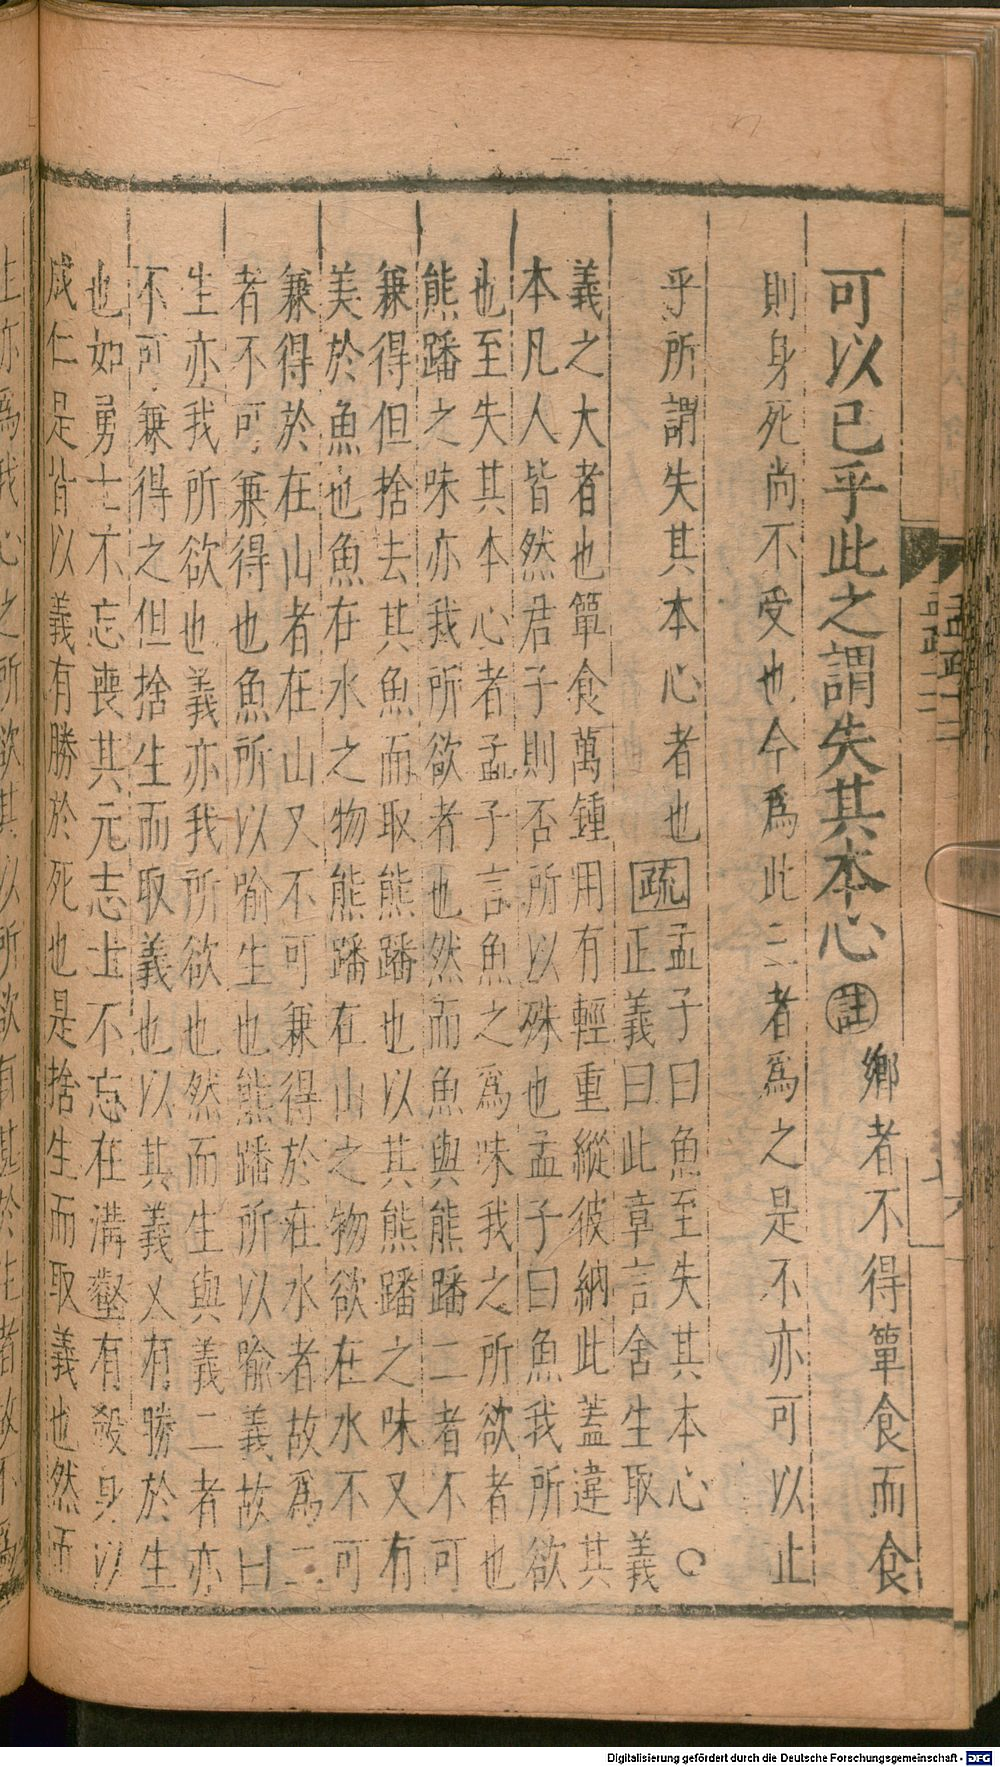 可以已乎此之謂失其本心註鄉者不得簞食而食
則身死尚不受也今爲此三者爲之是不亦可以止
乎所謂失其本心者也疏孟子曰魚至失其本心○
正義曰此章言舍生取義
義之大者也簞食萬鍾用有輕重縱彼納此蓋違其
本凡人皆然君子則否所以殊也孟子曰魚我所欲
也至失其本心者孟子言魚之爲味我之所欲者也
熊蹯之味亦我所欲者也然而魚與熊蹯二者不可
兼得但捨去其魚而取熊蹯也以其熊蹯之味又有
美於魚也魚在水之物熊蹯在山之物欲在水不可
兼得於在山者在山又不可兼得於在水者故爲二
者不可兼得也魚所以喻生也熊蹯所以喻義故曰
生亦我所欲也義亦我所欲也然而生與義二者亦
不可兼得之但捨生而取義也以其義又有勝於生
也如勇士不忘喪其元志士不忘在溝壑有殺身以
成仁是皆以義有勝於死也是捨生而取義也然所
上亦爲我心之所欲其以所欲有甚於生者故不爲
Digitalisierung gefördert durch die Deutsche Forschungsgemeinschaft - DFG